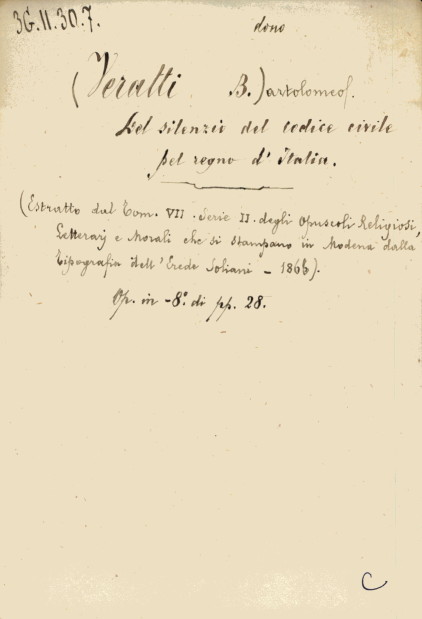 3G.11.30.7.
dono
(Veratti B.) artolomeo/.
Del silenzio del codice civile
pel regno d'Italia.
(Estratto dal Tom. VII. Serie II. degli Opuscoli Religiosi,
Letterarj e Morali che si stampano in Modena dalla
Tipografia dell'Erede Soliani - 1866).
Op. in -8º. di pp. 28.
C